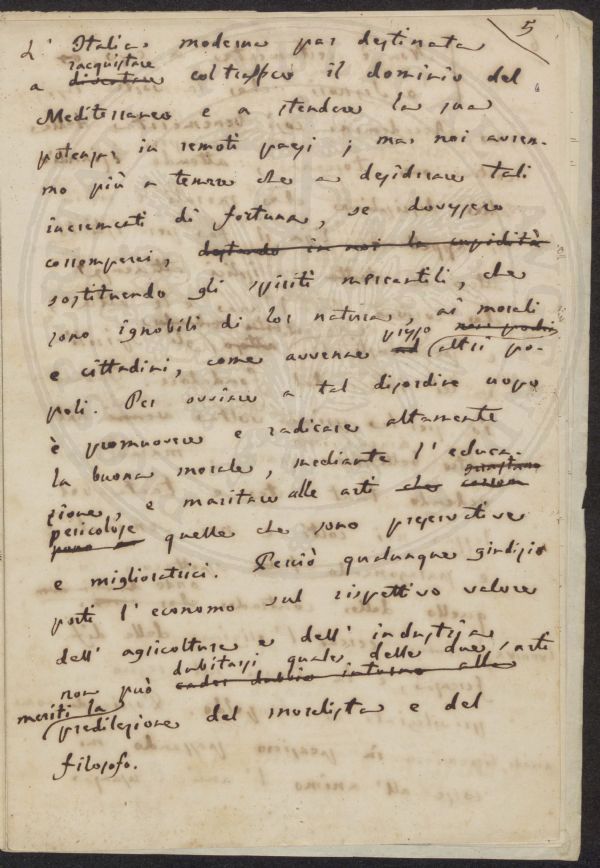 5
L' Italia moderna par destinata
racquistare
a diventare col traffico il dominio del
Mediterraneo e a stendere la sua
potenza in remoti paesi; ma noi avrem-
mo più a temere che a desiderare tali
incrementi di fortuna, se dovessero
corromperci, destando in noi la cupidità
sostituendo gli spiriti mercantili, che
sono ignobili di lor natura, ai morali
e cittadini, come avvenne presso altri po-
poli. Per ovviare a tal disordine uopo
è promuovere e radicare altamente
la buona morale, mediante l' educa-
zione, e maritare alle arti che guastano
pericolose quelle che sono preservative
e miglioratrici. Perciò qualunque giudizio
porti l' economo sul rispettivo valore
dell' agricoltura e dell' industria
dubitarsi quale delle due arti
non può cader dubbio intorno alla
meriti la
predilezione del moralista e del
filosofo.